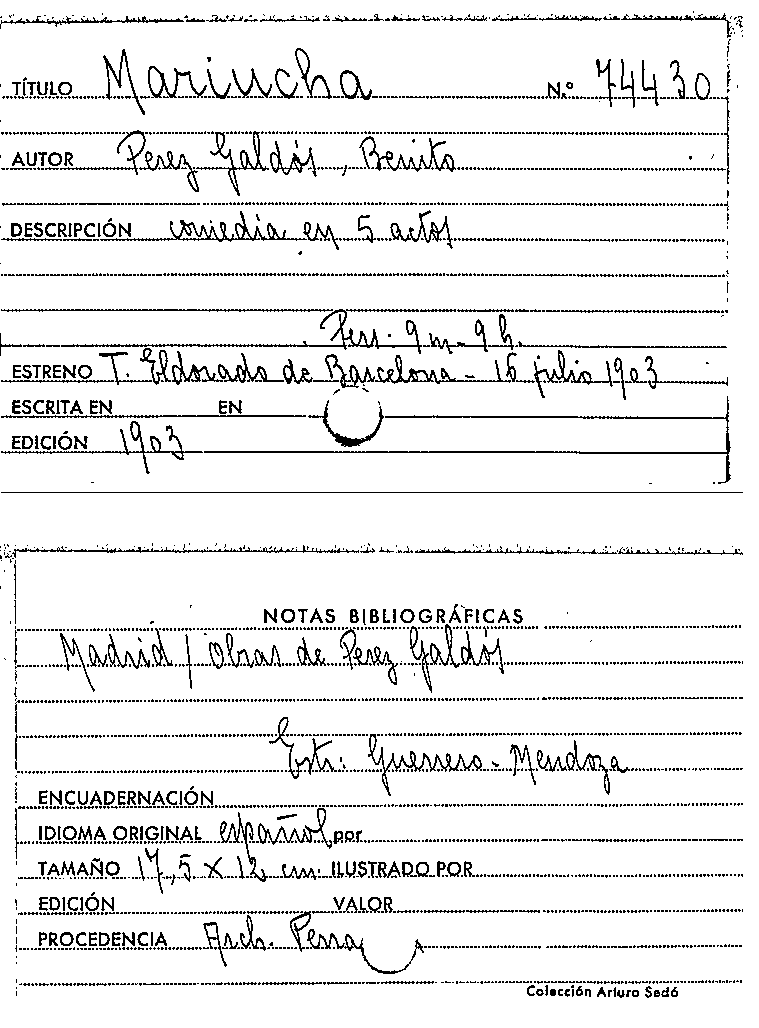 TÍTULO Mariucha N.º 74430
AUTOR Perez Galdós, Benito
DESCRIPCIÓN comedia en 5 actos
Pers: 9 m - 9 h.
ESTRENO T. Eldorado de Barcelona - 16 julio 1903
ESCRITA EN EN
EDICIÓN 1903
NOTAS BIBLIOGRÁFICAS
Madrid / Obras de Perez Galdós
Estr: Guerrero - Mendoza
ENCUADERNACIÓN
IDIOMA ORIGINAL español por
TAMAÑO 17,5 x 12 cm. ILUSTRADO POR
EDICIÓN VALOR
PROCEDENCIA Arch.
Colección Arturo Sedó